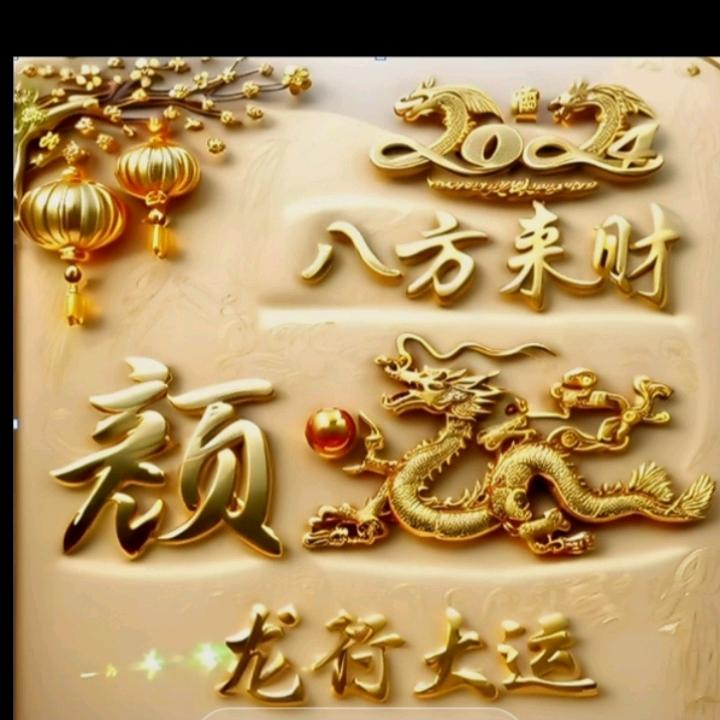 2024
八方来财
颜
龙行大运